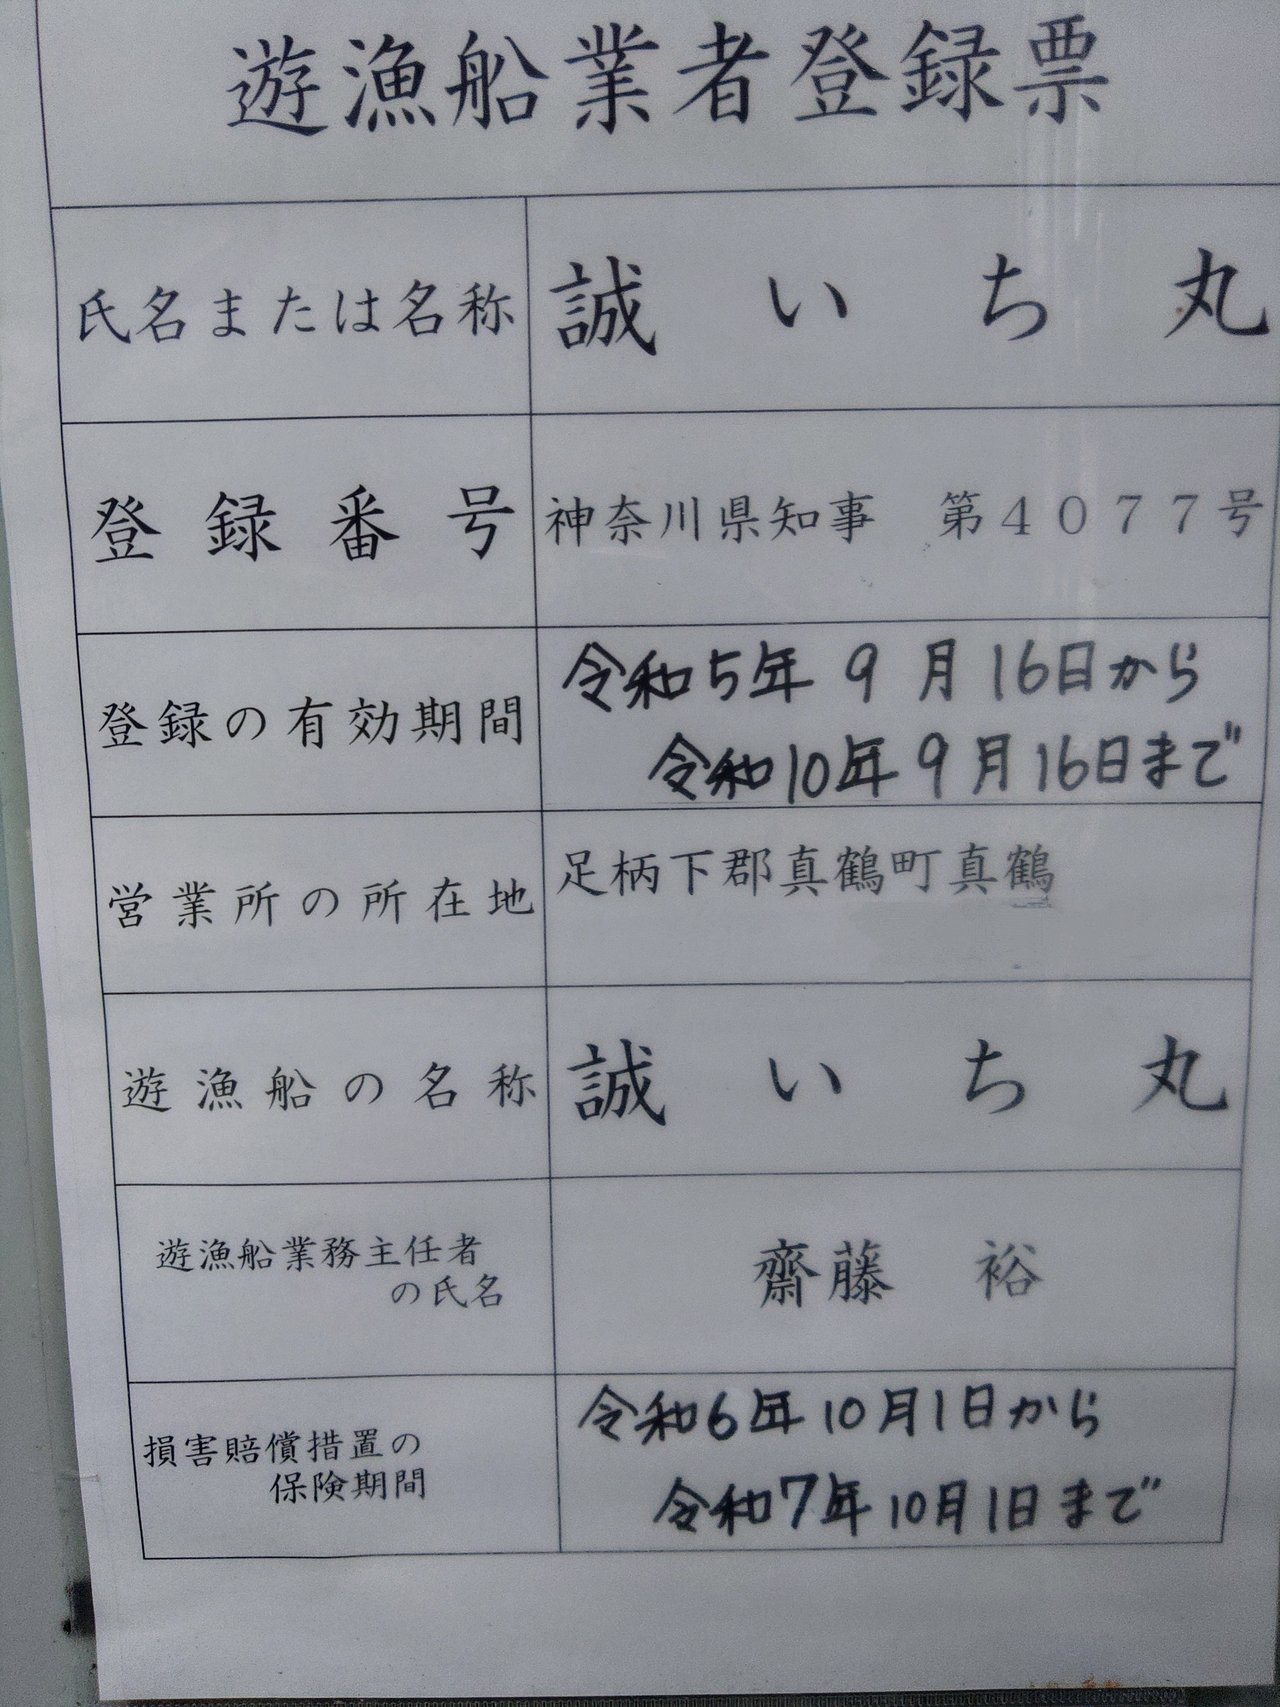 遊漁船業者登録票
氏名または名称 誠いち丸
登録番号 神奈川県知事 第4077号
登録の有効期間 令和5年9月16日から
令和10年9月16日まで
営業所の所在地 足柄下郡真鶴町真鶴
遊漁船の名称 誠いち丸
遊漁船業務主任者
の氏名
齋藤 裕
損害賠償措置の
保険期間
令和6年10月1日から
令和7年10月1日まで